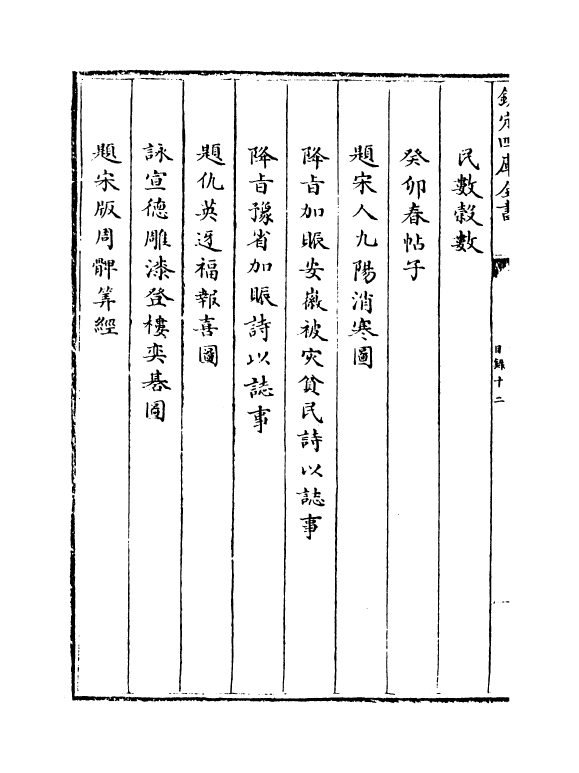 欽定四庫全書
目錄十二
民數穀數
癸卯春帖子
題宋人九陽消寒圖
降旨加賑安徽被灾貧民詩以誌事
降旨豫省加賑詩以誌事
題仇英迓福報喜圖
詠宣德雕漆登樓奕棊圖
題宋版周髀筭經